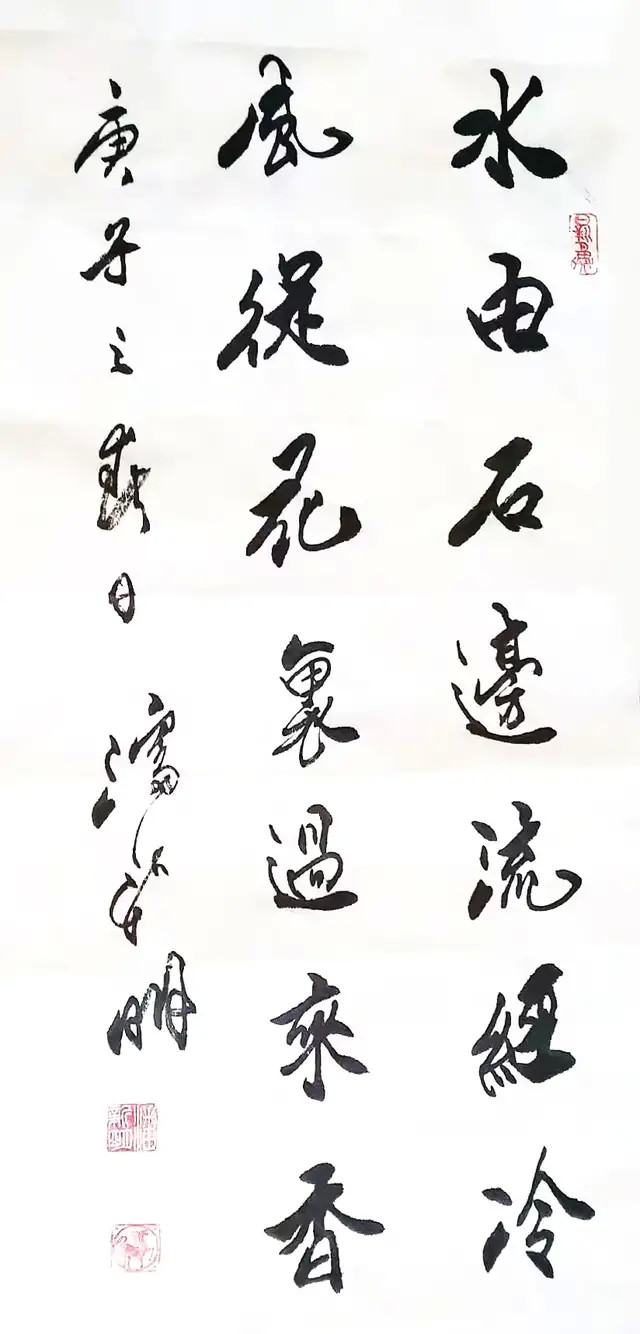 水由石邊流經冷
風從花裏過來香
庚子之春日 明